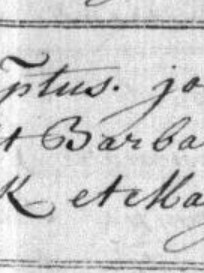 ptus. jo
et Barba
K et Ma